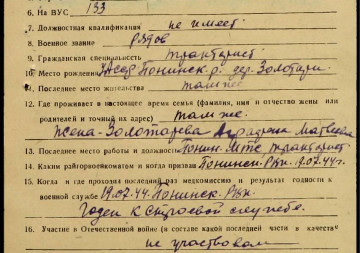 6. На ВУС 133
7. Должностная квалификация не имеет
8. Военное звание рядов
9. Гражданская специальность тракторист
10. Место рождения УАССР Понинск. р. дер. Золотари
11. Последнее место жительства там же
12. Где проживает в настоящее время семья (фамилия, имя и отчество жены или
родителей и точный их адрес) там же.
Жена-Золотарева Агрофена Матвеевн
13. Последнее место работы и должность Понин. МТС тракторист.
14. Каким райгорвоенкоматом и когда призван Понинск. РВК. 19.02.44 г.
15. Когда и где проходил последний раз медкомиссию и результат годности к
военной службе 19.02.44. Понинск. РВК.
Годен к строевой службе.
16. Участие в Отечественной войне (в составе какой последней части в качестве
не участвовал